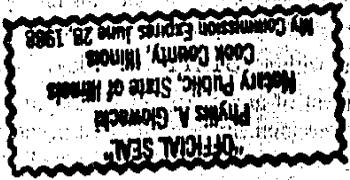 "OFFICIAL SEAL"
Phyllis A. Glowacki
Notary Public, State of Illinois
Cook County, Illinois
My Commission Expires June 28, 1988